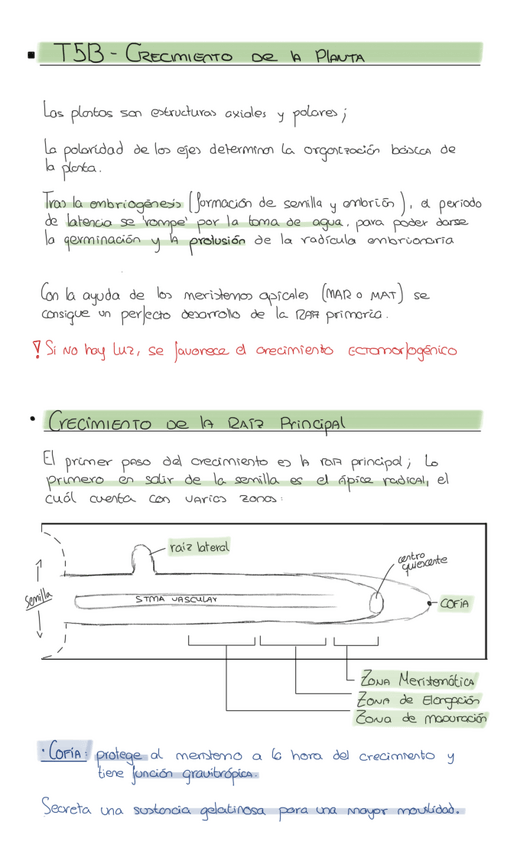 T5B - Crecimiento de la Planta
Las plantas son estructuras axiales y polares;
La polaridad de los ejes determinan la organización básica de
la planta.
Tras la embriogénesis (formación de semilla y embrión), el periodo
de latencia se 'rompe' por la toma de agua, para poder darse
la germinación y la prolusión de la radícula embrionaria
Con la ayuda de los meristemos apicales (MAR o MAT) se
consigue un perfecto desarrollo de la raíz primaria.
! Si no hay luz, se favorece el crecimiento ectomorfogénico
Crecimiento de la Raíz Principal
El primer paso del crecimiento es la raíz principal; Lo
primero en salir de la semilla es el ápice radical, el
cuál cuenta con varias zonas:
raíz lateral
centro
quiescente
Semilla
STMA VASCULAR
COFIA
Zona Meristemática
Zona de Elongación
Zona de maduración
· Cofia: protege al meristemo a la hora del crecimiento y
tiene función gravitrópica.
Secreta una sustancia gelatinosa para una mayor movilidad.